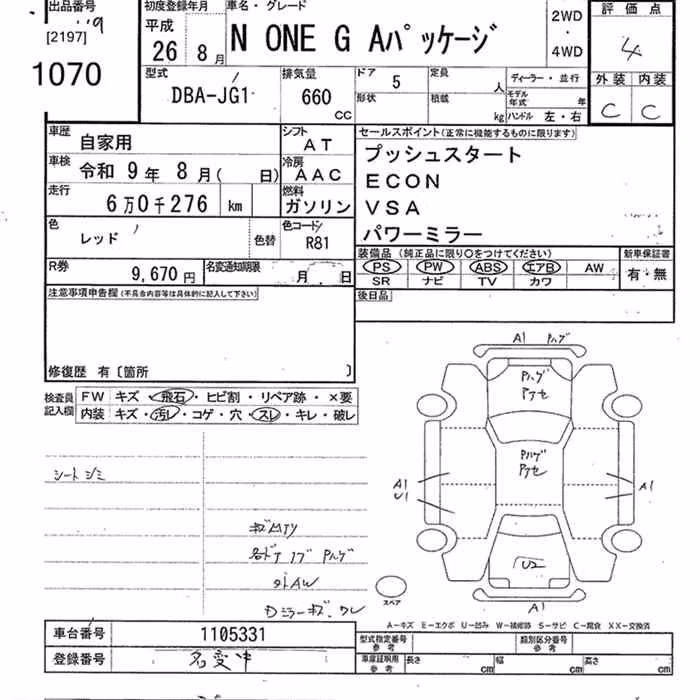 出品番号
[2197]
1070
初度登録年月
平成
26 8 月
車名・グレード
N ONE G Aパッケージ
2WD
・
4WD
評価点
4
外装 内装
C C
型式
DBA-JG1
排気量
660
CC
ドア 5
定員 人
形状
積載 kg
ディーラー・並行
モデル年式 年
ハンドル 左・右
車歴
自家用
シフト
AT
車検
令和 9年 8月( 日)
冷房
AAC
走行
6万0千276 km
燃料
ガソリン
色
レッド
色替
色コード
R81
R券
9,670円
名変通知期限
月 日
セールスポイント(正常に機能するものに限ります)
プッシュスタート
ECON
VSA
パワーミラー
装備品 (純正品に限り○をつけてください)
PS PW ABS エアB AW
SR ナビ TV カワ
新車保証書
有・無
後日品
注意事項申告欄(不具合内容等は具体的に記入して下さい)
修復歴 有〔箇所 〕
検査員記入欄
FW キズ・飛石・ヒビ割・リペア跡・×要
内装 キズ・汚レ・コゲ・穴・スレ・キレ・破レ
シートシミ
外AW
A1 Pハゲ
Pハゲ
Pハゲ
A1
U1
A1
U2
A1
スペア
A−キズ E−エクボ U−凹み W−補修跡 S−サビ C−腐食 XX−交換済
車台番号 1105331
登録番号 名変中
型式指定番号
参考
類別区分番号
参考
車庫証明用
参考
長さ cm 幅 cm 高さ cm